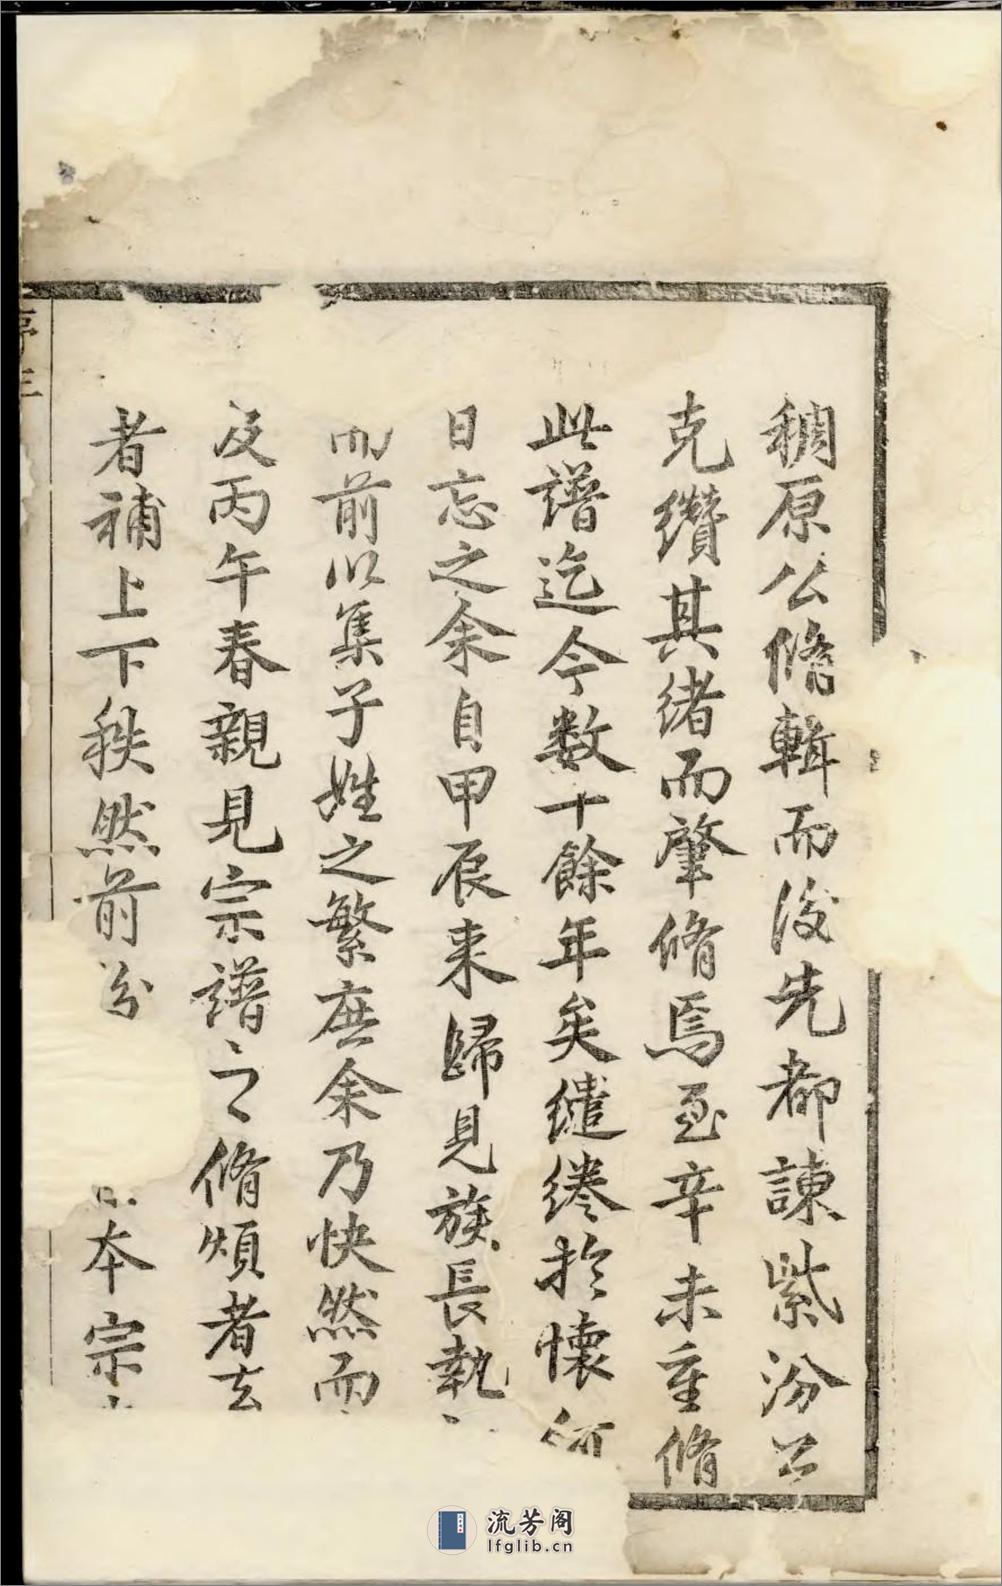 稠原公脩輯而後先都諫紫汾公
克纘其緒而肇脩焉至辛未重脩
此譜迄今数十餘年矣繾綣於懷何
日忘之余自甲辰来歸見族長執
而前以集子姓之繁庶余乃快然而
及丙午春親見宗譜之脩煩者去
者補上下秩然前分
本宗
序 三
流芳阁
lfglib.cn